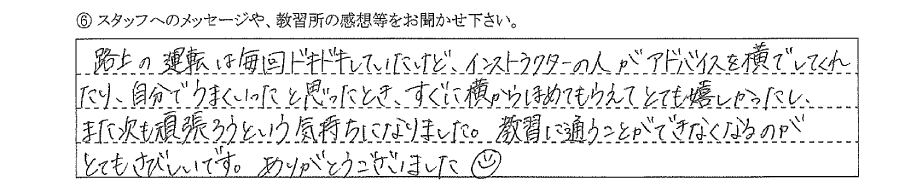 ⑥ スタッフへのメッセージや、教習所の感想等をお聞かせ下さい。
路上の運転は毎回ドキドキしていたけど、インストラクターの人がアドバイスを横でしてくれ
たり、自分でうまくいったと思ったとき、すぐに横からほめてもらえてとても嬉しかったし、
また次も頑張ろうという気持ちになりました。教習に通うことができなくなるのが
とてもさびしいです。ありがとうございました☺